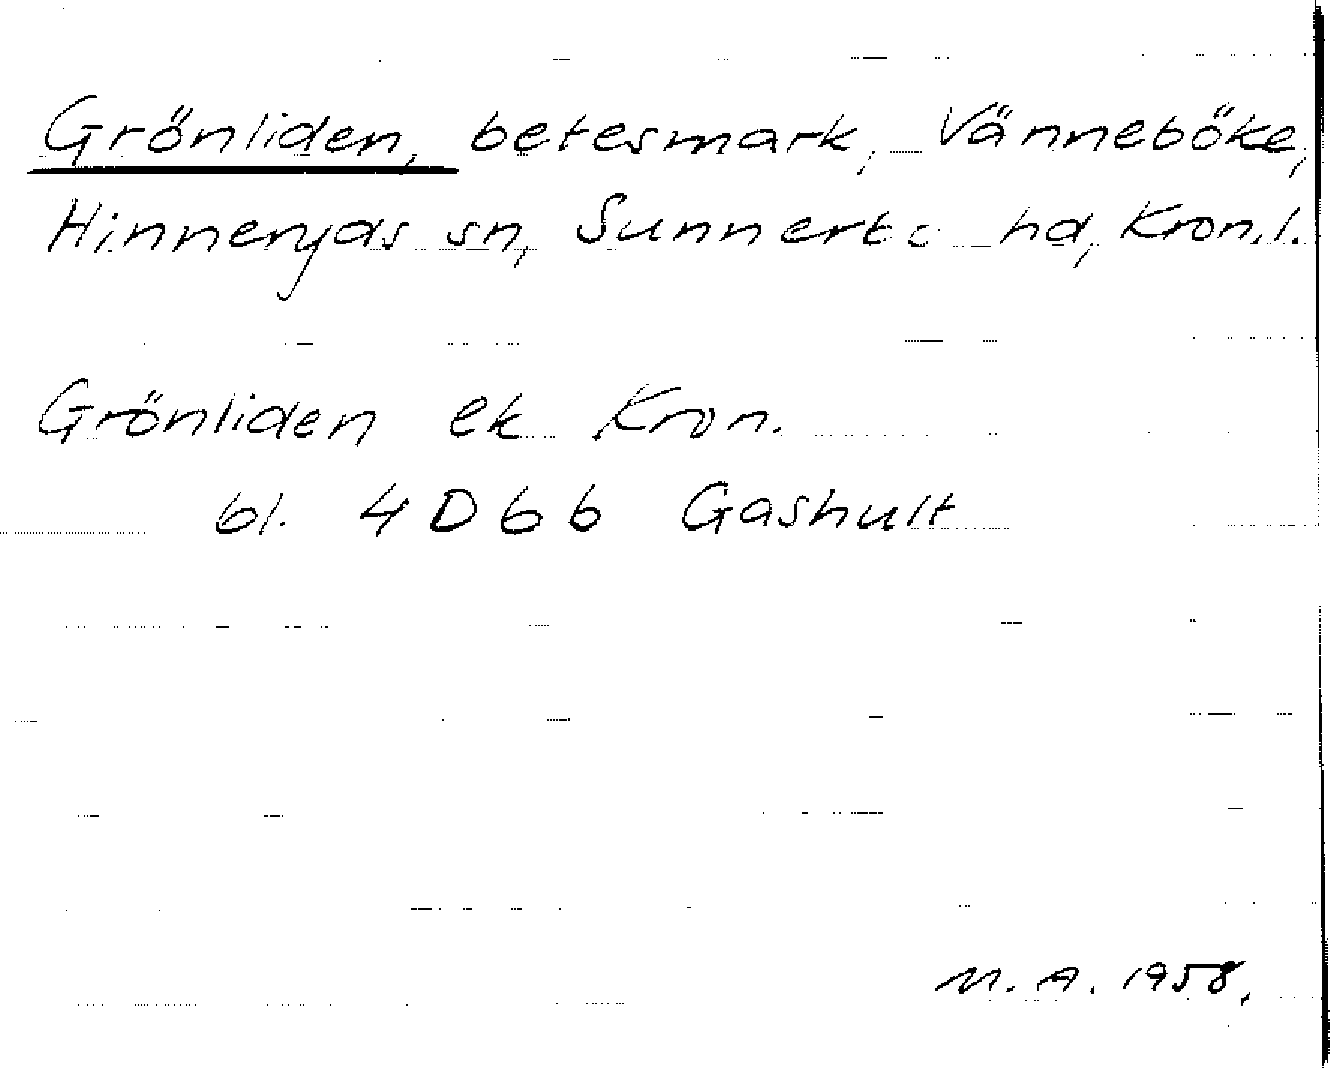 Grönliden, betesmark, Vänneböke,
Hinneryds sn, Sunnerbo hd, Kron. l.
Grönliden ek Kron.
bl. 4 D 6 b Gashult
M. A. 1958.